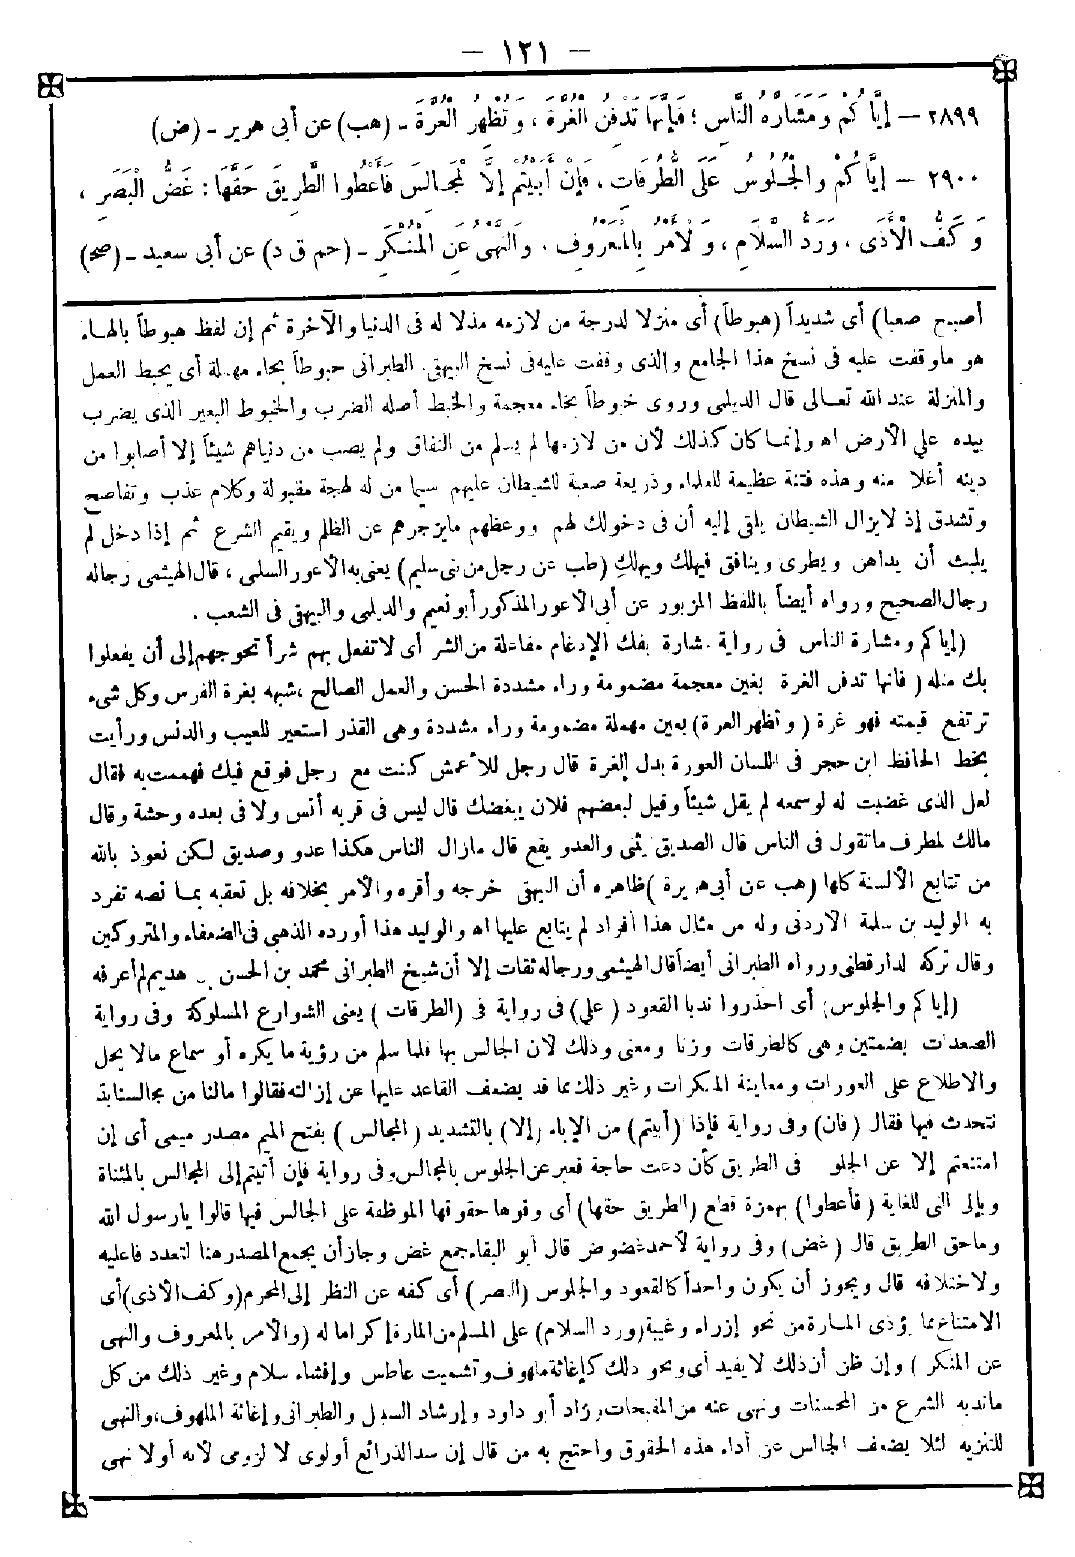 – ١٢١ –
٢٨٩٩ – إِيَّا كُمْ وَمَشَارَّةَ النَّاسِ ؛ فَإِنَّهَا تَدْفِنُ الْغُرَّةَ ، وَتُظْهِرُ الْعُرَّةَ – (هب) عن أبى هرير – (ض)
٢٩٠٠ – إِيَّا كُمْ والْجُلُوسَ عَلَى الطُّرُقَاتِ ، فَإِنْ أَبَيْتُمْ إلاَّ الْمَجالِسَ فَأَعْطُوا الطَّرِيقَ حَقَّهَا : غَضُّ الْبَصَرِ ،
وَ كَفُّ الْأَذَى ، وَرَدُّ السَّلَامِ ، وَالْأَمْرُ بِالْمَعْرُوفِ ، وَالنَّهْىُ عَنِ الْمُنْكَرِ – (حم ق د) عن أبى سعيد – (صح)
أصبح صعبا) أى شديداً (هبوطاً) أى منزلا لدرجة من لازمه مذلا له فى الدنيا والآخرة ثم إن لفظ هبوطاً بالهاء
هو ماوقفت عليه فى نسخ هذا الجامع والذى وقفت عليه فى نسخ البيهقى. الطبرانى حبوطاً بحاء مهملة أى يحبط العمل
والمنزلة عند الله تعالى قال الديلمى وروى خبوطاً بخاء معجمة والخبط أصله الضرب والخبوط البعير الذى يضرب
بيده على الأرض اه وإنما كان كذلك لأن من لازمها لم يسلم من النفاق ولم يصب من دنياهم شيئاً إلا أصابوا من
دينه أغلا منه وهذه فتنة عظيمة للعلماء وذريعة صعبة للشيطان عليهم سيما من له لهجة مقبولة وكلام عذب وتفاصح
وتشدق إذ لايزال الشيطان يلقى إليه أن فى دخولك لهم ووعظهم مايزجرهم عن الظلم ويقيم الشرع ثم إذا دخل لم
يلبث أن يداهن ويطرى وينافق فيهلك ويهلك (طب عن رجل من بنى سليم) يعنى به الأعور السلمى ، قال الهيثمى رجاله
رجال الصحيح ورواه أيضاً باللفظ المزبور عن أبى الأعور المذكور أبو نعيم والديلمى والبيهقى فى الشعب .
(إياكم ومشارة الناس فى رواية مشارة بفك الإدغام مفاعلة من الشر أى لاتفعل بهم شراً تحوجهم إلى أن يفعلوا
بك مثله ( فانها تدفن الغرة بغين معجمة مضمومة وراء مشددة الحسن والعمل الصالح ،شبهه بغرة الفرس وكل شىء
ترتفع قيمته فهو غرة ( وتظهر العرة) بعين مهملة مضمومة وراء مشددة وهى القذر استعير للعيب والدنس ورأيت
بخط الحافظ ابن حجر فى اللسان العورة بدل الغرة قال رجل للأعمش كنت مع رجل فوقع فيك فهممت به فقال
لعل الذى غضبت له لو سمعه لم يقل شيئاً وقيل لبعضهم فلان يبغضك قال ليس فى قربه أنس ولا فى بعده وحشة وقال
مالك لمطرف ماتقول فى الناس قال الصديق يثنى والعدو يقع قال مازال الناس هكذا عدو وصديق لكن نعوذ بالله
من تتابع الألسنة كلها (هب عن أبى هريرة )ظاهره أن البيهقى خرجه وأقره والأمر بخلافه بل تعقبه بما نصه تفرد
به الوليد بن سلمة الأردنى وله من مثال هذا أفراد لم يتابع عليها اه والوليد هذا أورده الذهبى فى الضعفاء والمتروكين
وقال تركه الدارقطنى ورواه الطبرانى أيضاً قال الهيثمى ورجاله ثقات إلا أن شيخ الطبرانى محمد بن الحسن بن هديم لم أعرفه
(إياكم والجلوس) أى احذروا ندبا القعود ( على) فى رواية فى (الطرقات ) يعنى الشوارع المسلوكة وفى رواية
الصعدات بضمتين وهى كالطرقات وزنا ومعنى وذلك لأن الجالس بها قلما سلم من رؤية مايكره أو سماع مالا يحل
والاطلاع على العورات ومعاينة المنكرات وغير ذلك مما قد يضعف القاعد عليها عن إزالته فقالوا مالنا من مجالسنا بد
نتحدث فيها فقال (فان) وفى رواية فإذا (أبيتم) من الإباء (إلا) بالتشديد ( المجالس ) بفتح الميم مصدر ميمى أى إن
امتنعتم إلا عن الجلو فى الطريق كأن دعت حاجة فعبر عن الجلوس بالمجالس وفى رواية فإن أتيتم إلى المجالس بالمثناة
وبإلى التى للغاية (فأعطوا) بهمزة قطع (الطريق حقها) أى وفوها حقوقها الموظفة على الجالس فيها قالوا يارسول الله
وماحق الطريق قال (غض) وفى رواية لأحمد غضوض قال أبو البقاء جمع غض وجاز أن يجمع المصدر هنا لتعدد فاعليه
ولاختلافه قال ويجوز أن يكون واحداً كالقعود والجلوس (البصر) أى كفه عن النظر إلى المحرم (وكف الأذى) أى
الامتناع مما يؤذى المارة من نحو إزراء وغيبة (ورد السلام) على المسلم من المارة إكراما له (والأمر بالمعروف والنهى
عن المنكر ) وإن ظن أن ذلك لا يفيد أى ونحو ذلك كإغاثة ملهوف وتشميت عاطس وإفشاء سلام وغير ذلك من كل
ماندبه الشرع من المحسنات ونهى عنه من المقبحات وزاد أبو داود وإرشاد السبيل والطبرانى وإغاثة الملهوف، والنهى
للتنزيه لئلا يضعف الجالس عن أداء هذه الحقوق واحتج به من قال إن سد الذرائع أولوى لا لزومى لأنه أولا نهى